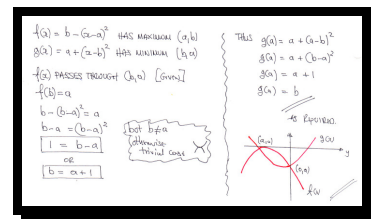 f(x) = b - (x-a)² HAS MAXIMUM (a,b)
g(x) = a + (x-b)² HAS MINIMUM (b,a)
f(x) PASSES THROUGH (b,a) [GIVEN]
f(b) = a
b - (b-a)² = a
b - a = (b-a)²
1 = b - a
OR
b = a + 1
but b ≠ a
otherwise
trivial case
THUS g(a) = a + (a-b)²
g(a) = a + (b-a)²
g(a) = a + 1
g(a) = b
AS REQUIRED.
g(x)
y
f(x)